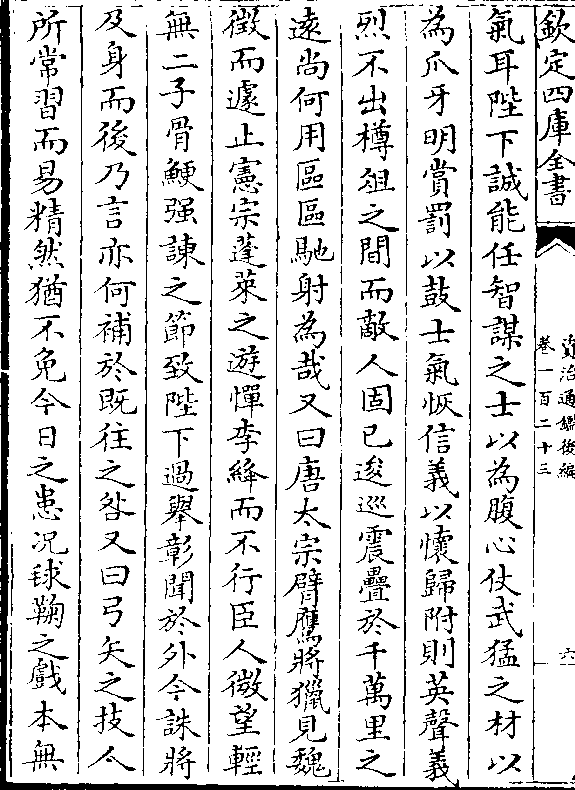 欽定四庫全書
資治通鑑後編
卷一百二十三
六
氣耳陛下誠能任智謀之士以為腹心仗武猛之材以
為爪牙明賞罰以鼓士氣恢信義以懷歸附則英聲義
烈不出樽俎之間而敵人固已逡巡震疊於千萬里之
遠尚何用區區馳射為哉又曰唐太宗臂鷹將獵見魏
徵而遽止憲宗蓬萊之游憚李絳而不行臣人微望輕
無二子骨鯁强諫之節致陛下過舉彰聞於外今誅將
及身而後乃言亦何補於既往之咎又曰弓矢之技人
所常習而易精然猶不免今日之患况毬鞠之戲本無